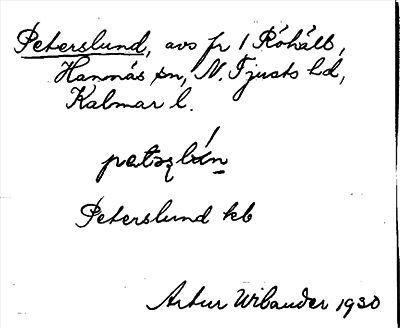 Peterslund, avs fr 1 Röhält,
Hannäs sn, N. Tjusts hd,
Kalmar l.
Peterslund kb
Artur Wilander 1930